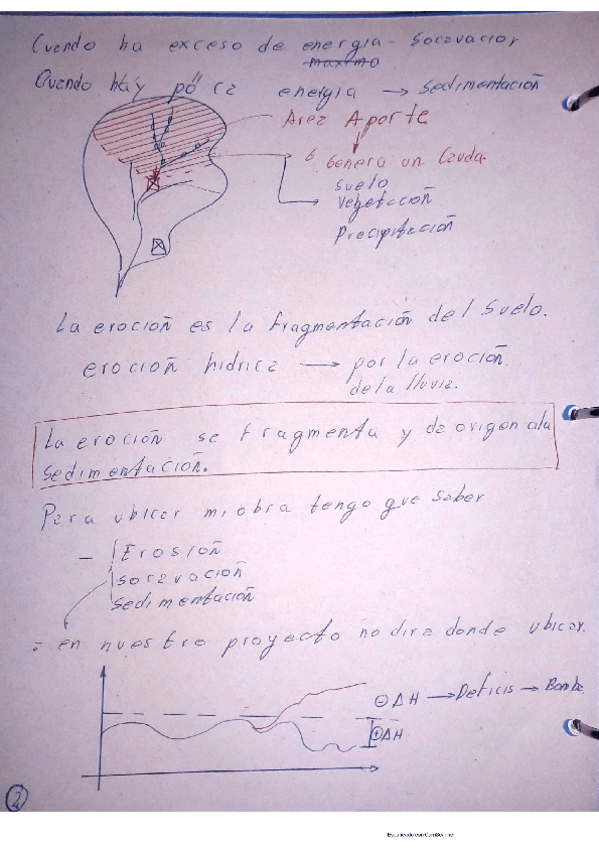 Cuando ha exceso de energia - Socavacion
maximo
Cuando háy póca energia → Sedimentación
Area Aporte
6 Genera un Cauda.
Suelo
Vegetación
Precipitación
La eroción es la fragmentación del Suelo.
eroción hidrica → por la eroción.
de la lluvia.
La eroción se fragmenta y da origen ala
Sedimentación.
Para ubicar mi obra tengo que saber
- Erosión
socavación
Sedimentación
en nuestro proyecto no dira donde ubicar.
⊖ΔH → Deficis → Bomba.
⊕ΔH
2
Escaneado con CamScanner